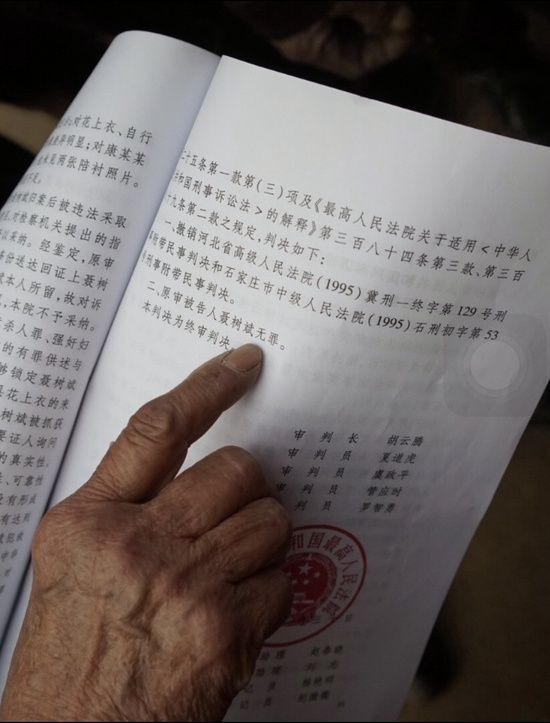 对花上衣、自行
差异明显;对康某某
两张陪衬照片。
归案后被违法采取
对检察机关提出的指
以采纳。经鉴定,原审
送达回证上聂树
本人所留,故对诉
本院不予采纳。
杀人罪、强奸妇
的有罪供述与
够锁定聂树斌
花上衣的来
树斌被抓获
要证人询问
的真实性、
可靠性
有形成
有达到
二十五条第一款第(三)项及《最高人民法院关于适用<中华人
共和国刑事诉讼法>的解释》第三百八十四条第三款、第三百
九条第二款之规定,判决如下:
一、撤销河北省高级人民法院(1995)冀刑一终字第129号刑
附带民事判决和石家庄市中级人民法院(1995)石刑初字第53
号刑事附带民事判决。
二、原审被告人聂树斌无罪。
本判决为终审判决。
审 判 长 胡云腾
审 判 员 夏道虎
审 判 员 虞政平
审 判 员 管应时
审 判 员 罗智勇
和国最高人民法院
助理 赵春晓
助理 刘
记员 杨艳明
记员